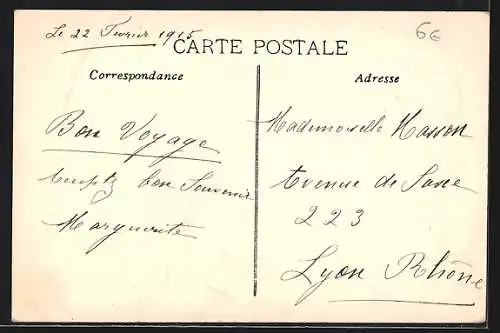 Le 22 Fevrier 1915
6€
CARTE POSTALE
Correspondance
Adresse
Bon Voyage
bon Souvenir
Marguerite
Mademoiselle Masson
Avenue de Saxe
223
Lyon Rhône